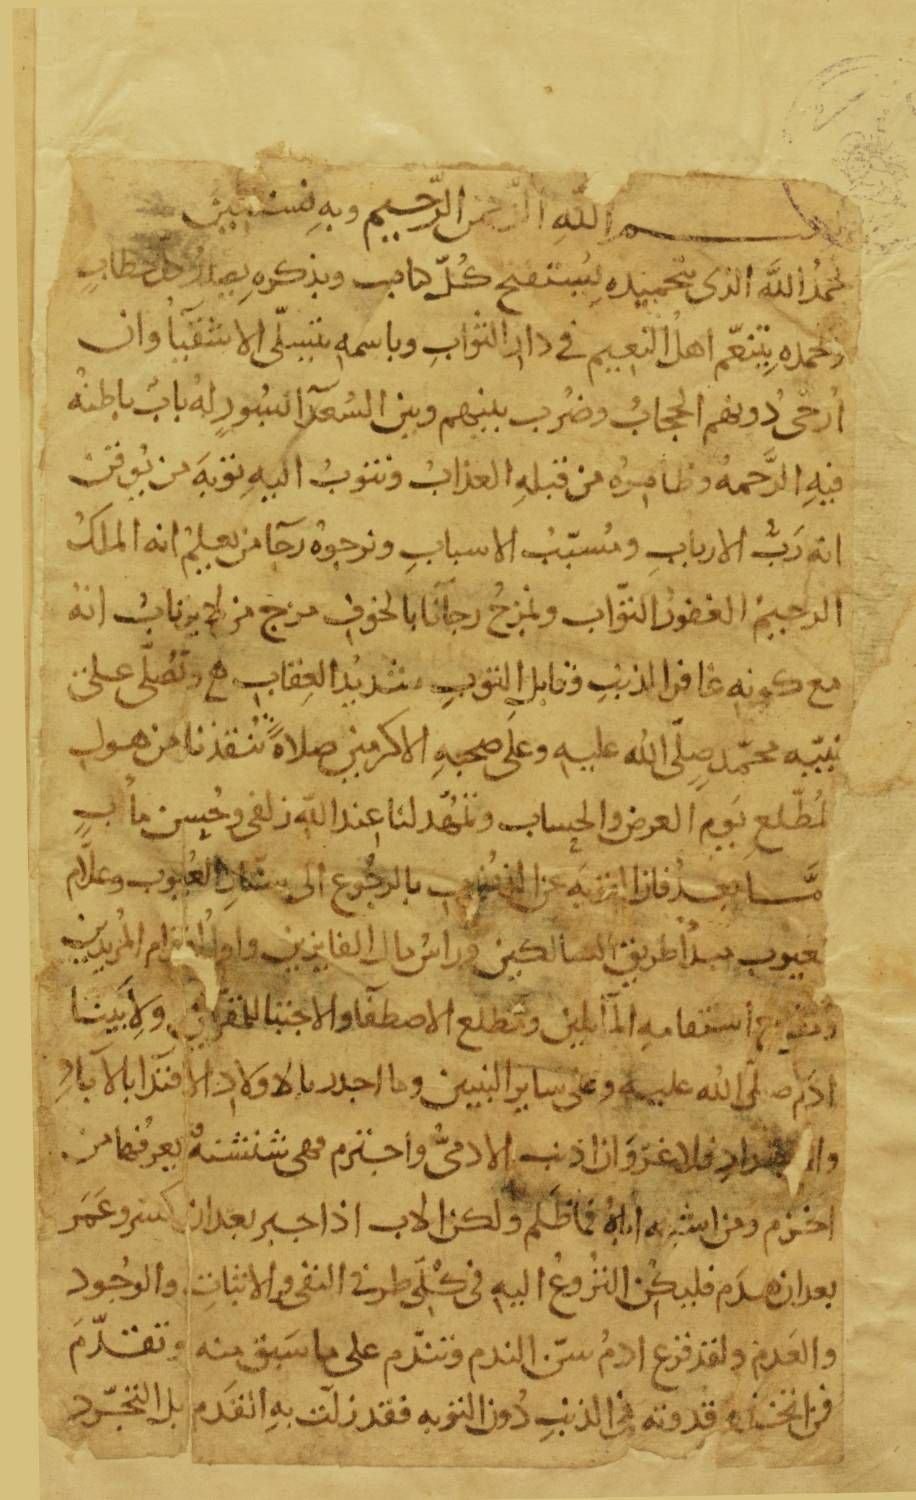 بسم الله الرحمن الرحيم وبه نستعين
نحمدُ الله الذى بتحميده يُستفتح كُلّ كتاب وبذكره يصدر كل خطاب
وبحمده يتنعّم اهلُ النعيم فى دار الثوابِ وباسمه يتسلّى الاشقيآُ وان
اُرخى دُونهم الحجابُ وضُرب بينهم وبين السُعدآ بسُورٍ لهُ بابٌ باطنهُ
فيهِ الرَّحمةُ وظاهرُه من قبلهِ العذابُ ونتوبُ اليهِ توبةَ من يُوقن
انه رَبُّ الاربابِ ومُسبّبُ الاسبابِ ونرجوهُ رجآ من يعلمُ انه الملكُ
الرحيمُ الغفورُ التوّاب ونمزجُ رجآنا بالخوفِ مزج من لا يرتابُ انهُ
مع كونه غافر الذنبِ وقابلِ التوبِ شديدُ العِقاب ونُصلّى على
نبيّه محمّدٍ صلّى الله عليه وعلى صحبهِ الاكرمين صلاةً تُنقذنا من هول
المُطّلعِ يَوم العرض والحساب وتمهّد لنا عند الله زلفى وحُسن مأبٍ
امَّا بعدُ فان التوبَة عن الذنُوب بالرجُوع الى ستّار العُيوب وعلّام
الغيوب مبدأ طريق السالكين وراسُ مال الفايزين واولُ اقدام المُريدين
ومفتاح استقامهِ المآئلين ومَطلع الاصطفآ والاجتبا للمقرّبين ولِأبينا
ادَم صلّى الله عليه وعلى ساير النبيين وما اجدر بالاولاد الاقتدا بالآباءِ
والاجدادِ فلا غروَ ان اذنب الادمىُّ واجترم فهى شنشنةٌ يعرفُها من
اخزم ومن اشبه اباهُ فما ظَلم ولكن الاب اذا جبر بعد ان كسر وعَمَر
بعد ان هدَم فليكُن النزُوعُ اليهِ فى كُلَى طرفى النفى والاثباتِ والوجُود
والعَدم ولقد قرع ادمُ سنّ الندم وتندّم على ما سَبق منه وتقدّمَ
فمن اتخذه قِدوته فى الذنبِ دُون التوبه فقد زلّت بهِ القدَم بل التجرّد